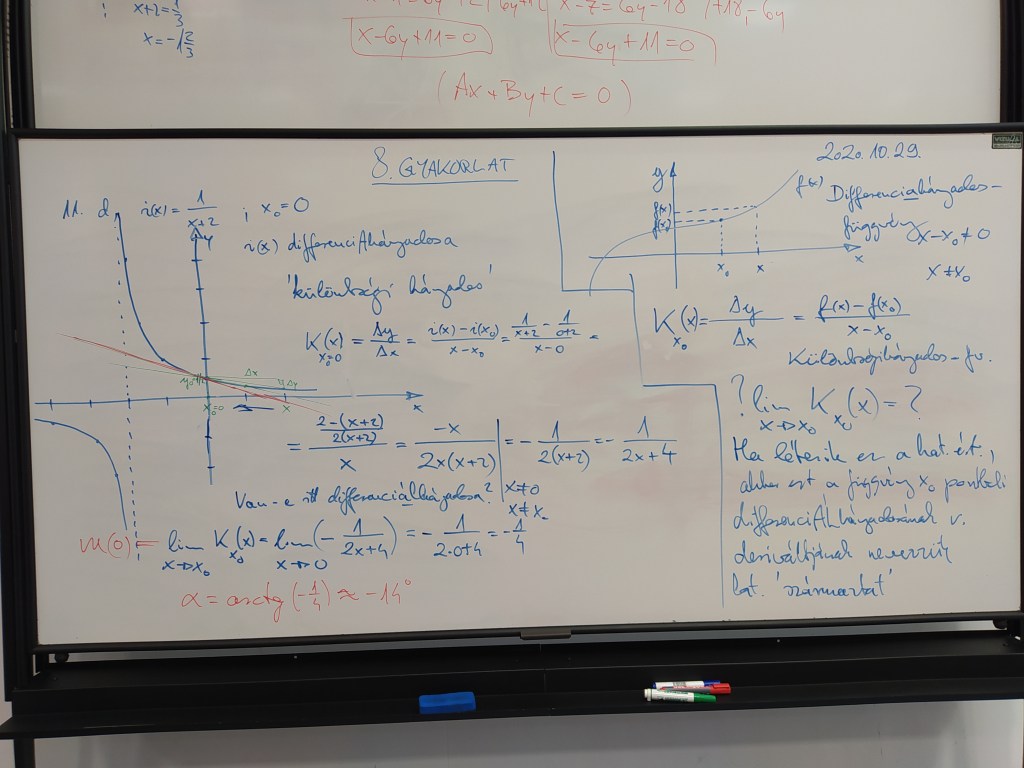 x+2=1/3
x=-1 2/3
x-7=6y-18 /+18,-6y
x-6y+11=0
x-6y+11=0
(Ax+By+C=0)
8. GYAKORLAT
2020.10.29.
11. d, i(x)=1/(x+2) ; x₀=0
i(x) differenciálhányadosa
'különbségi hányados'
K(x)=Δy/Δx=(i(x)-i(x₀))/(x-x₀)=(1/(x+2)-1/(0+2))/(x-0)=
x₀=0
y
Δx
Δy
x₀=0
x
x
=((2-(x+2))/(2(x+2)))/x=-x/(2x(x+2))=-1/(2(x+2))=-1/(2x+4)
x≠0
x≠x₀
Van-e itt differenciálhányadosa?
m(0)=lim K(x)=lim(-1/(2x+4))=-1/(2·0+4)=-1/4
x→x₀ x₀ x→0
α=arctg(-1/4)≈-14°
y
f(x)
f(x)
f(x₀)
x₀
x
x
Differenciahányados-
függvény
x-x₀≠0
x≠x₀
K(x)=Δy/Δx=(f(x)-f(x₀))/(x-x₀)
x₀
Különbségihányados-fv.
?lim K(x)=?
x→x₀ x₀
Ha létezik ez a hat. ért.,
akkor ezt a függvény x₀ pontbeli
differenciálhányadosának v.
deriváltjának nevezzük
hat. 'számértat'